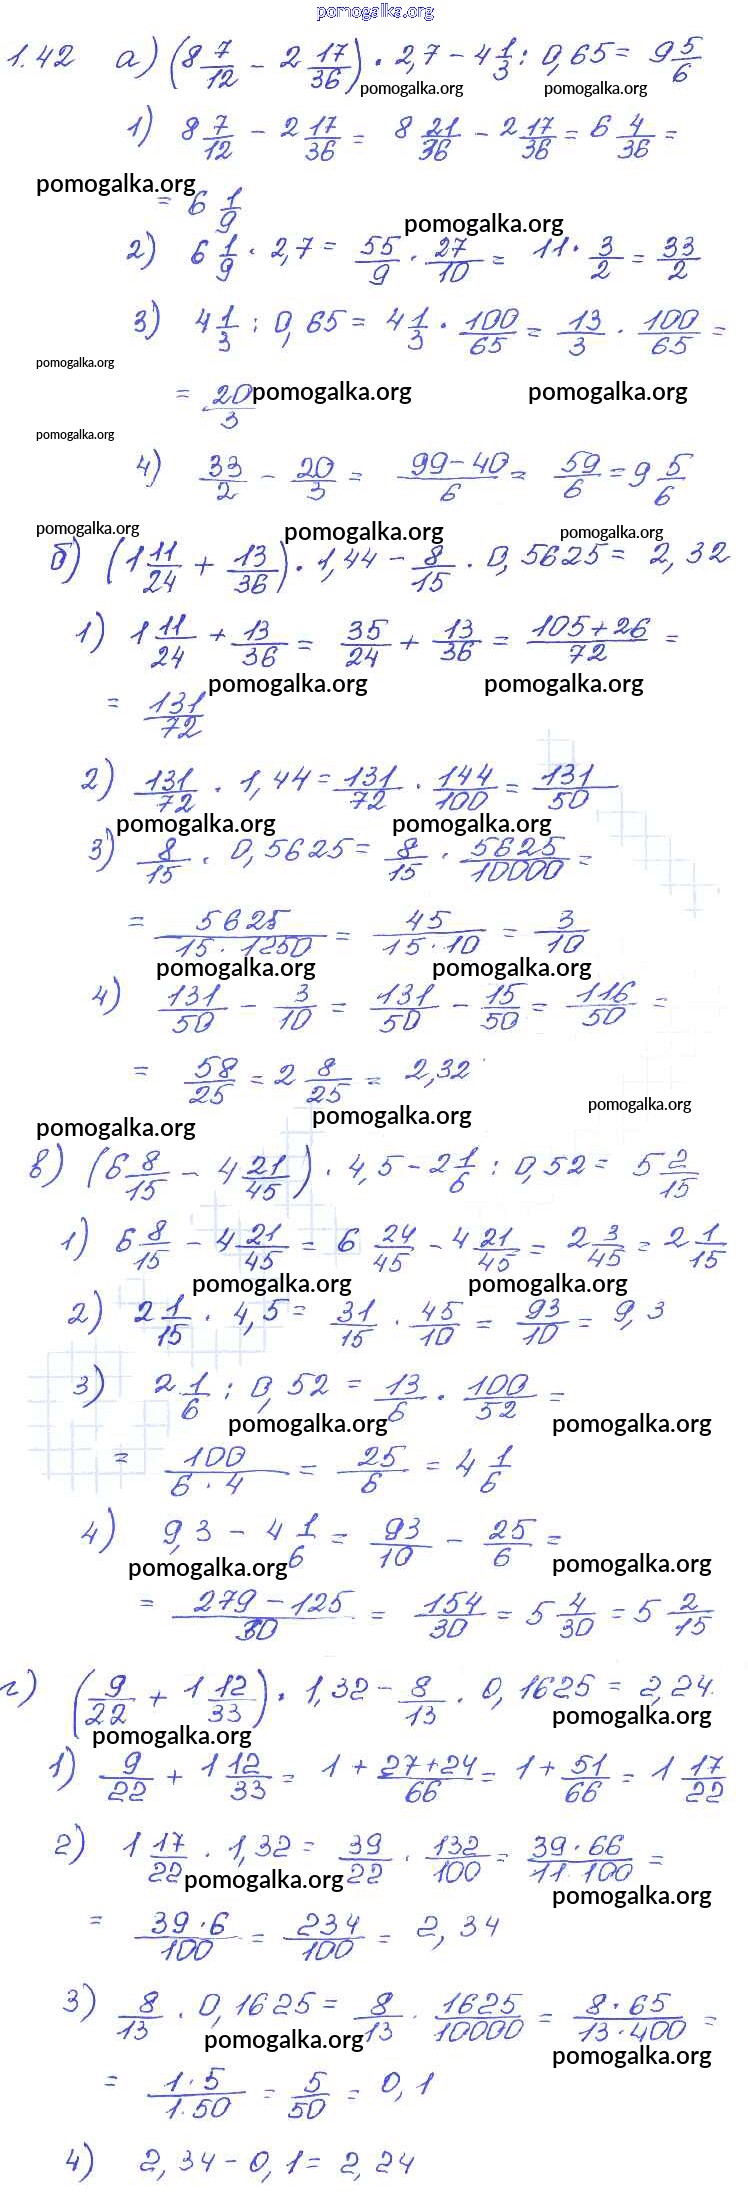 pomogalka.org
1.42 а) (8 7/12 - 2 17/36) · 2,7 - 4 1/3 : 0,65 = 9 5/6
pomogalka.org pomogalka.org
1) 8 7/12 - 2 17/36 = 8 21/36 - 2 17/36 = 6 4/36 =
pomogalka.org
= 6 1/9
pomogalka.org
2) 6 1/9 · 2,7 = 55/9 · 27/10 = 11 · 3/2 = 33/2
3) 4 1/3 : 0,65 = 4 1/3 · 100/65 = 13/3 · 100/65 =
pomogalka.org
= 20/3 pomogalka.org pomogalka.org
pomogalka.org
4) 33/2 - 20/3 = 99-40/6 = 59/6 = 9 5/6
pomogalka.org pomogalka.org pomogalka.org
б) (1 11/24 + 13/36) · 1,44 - 8/15 · 0,5625 = 2,32
1) 1 11/24 + 13/36 = 35/24 + 13/36 = 105+26/72 =
pomogalka.org pomogalka.org
= 131/72
2) 131/72 · 1,44 = 131/72 · 144/100 = 131/50
pomogalka.org pomogalka.org
3) 8/15 · 0,5625 = 8/15 · 5625/10000 =
= 5625/15·1250 = 45/15·10 = 3/10
pomogalka.org pomogalka.org
4) 131/50 - 3/10 = 131/50 - 15/50 = 116/50 =
= 58/25 = 2 8/25 = 2,32
pomogalka.org pomogalka.org pomogalka.org
в) (6 8/15 - 4 21/45) · 4,5 - 2 1/6 : 0,52 = 5 2/15
1) 6 8/15 - 4 21/45 = 6 24/45 - 4 21/45 = 2 3/45 = 2 1/15
pomogalka.org pomogalka.org
2) 2 1/15 · 4,5 = 31/15 · 45/10 = 93/10 = 9,3
3) 2 1/6 : 0,52 = 13/6 · 100/52 =
pomogalka.org pomogalka.org
= 100/6·4 = 25/6 = 4 1/6
4) 9,3 - 4 1/6 = 93/10 - 25/6 =
pomogalka.org pomogalka.org
= 279-125/30 = 154/30 = 5 4/30 = 5 2/15
г) (9/22 + 1 12/33) · 1,32 - 8/13 · 0,1625 = 2,24.
pomogalka.org pomogalka.org
1) 9/22 + 1 12/33 = 1 + 27+24/66 = 1 + 51/66 = 1 17/22
2) 1 17/22 · 1,32 = 39/22 · 132/100 = 39·66/11·100 =
pomogalka.org pomogalka.org
= 39·6/100 = 234/100 = 2,34
3) 8/13 · 0,1625 = 8/13 · 1625/10000 = 8·65/13·400 =
pomogalka.org pomogalka.org
= 1·5/1·50 = 5/50 = 0,1
4) 2,34 - 0,1 = 2,24